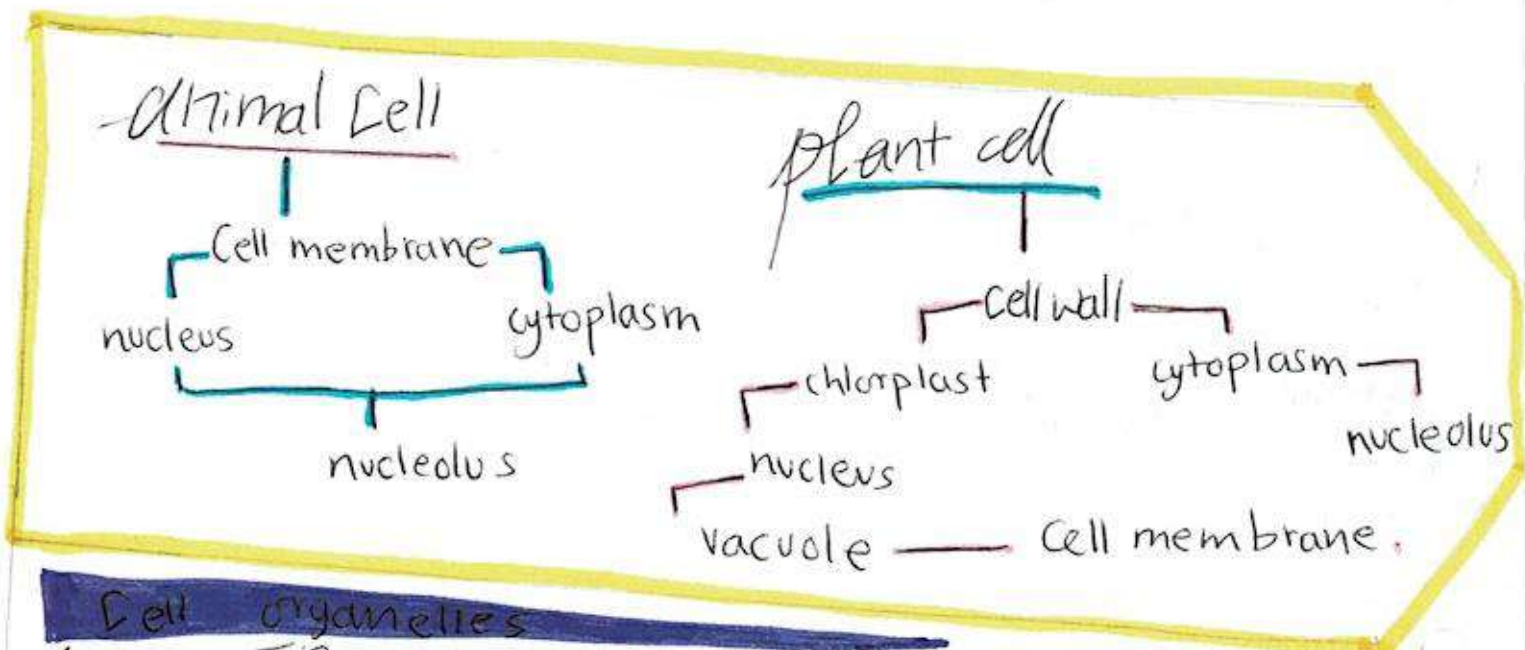 animal Cell
Cell membrane
nucleus cytoplasm
nucleolus
plant cell
Cell wall
chlorplast cytoplasm
nucleus nucleolus
vacuole Cell membrane.
Cell organelles